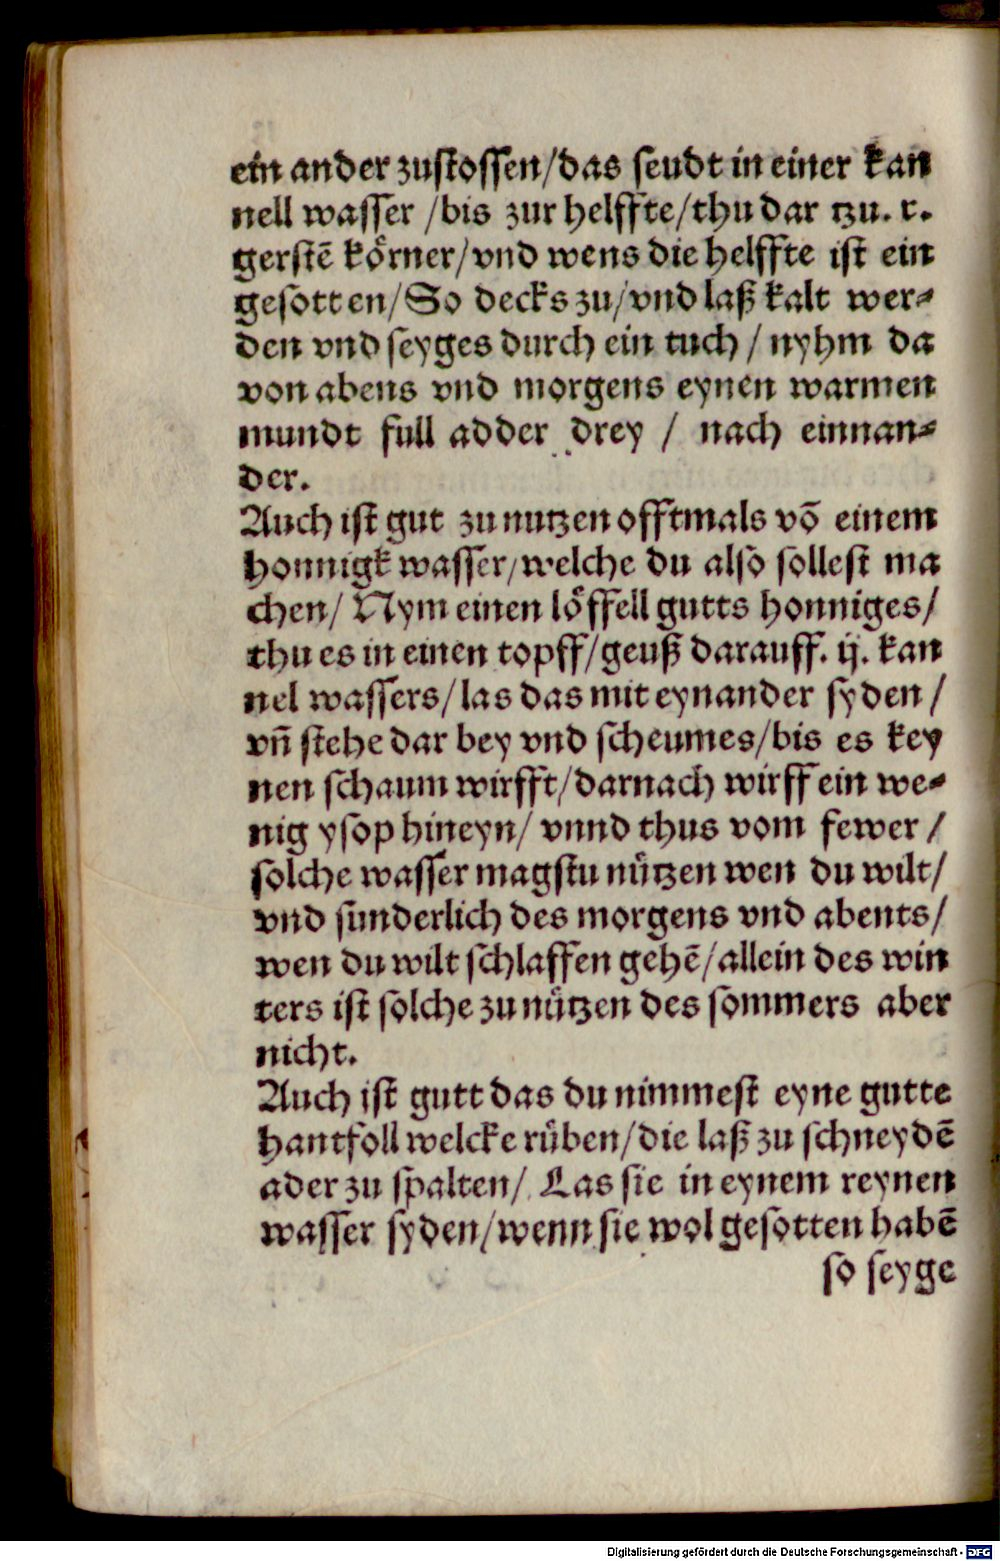 ein ander zustossen/das seudt in einer kan
nell wasser /bis zur helffte/thu dar tzu. x.
gerstē koͤrner/vnd wens die helffte ist ein
gesotten/So decks zu/vnd laß kalt wer⸗
den vnd seyges durch ein tuch / nyhm da
von abens vnd morgens eynen warmen
mundt full adder drey / nach einnan⸗
der.
Auch ist gut zu nutzen offtmals vō einem
honnigk wasser/welche du also sollest ma
chen/ Nym einen loͤffell gutts honniges/
thu es in einen topff/geuß darauff. ij. kan
nel wassers/las das mit eynander syden/
vñ stehe dar bey vnd scheumes/bis es key
nen schaum wirfft/darnach wirff ein we⸗
nig ysop hineyn/ vnnd thus vom fewer /
solche wasser magstu nuͤtzen wen du wilt/
vnd sunderlich des morgens vnd abents/
wen du wilt schlaffen gehē/allein des win
ters ist solche zu nuͤtzen des sommers aber
nicht.
Auch ist gutt das du nimmest eyne gutte
hantfoll welcke ruͤben/die laß zu schneydē
ader zu spalten/ Las sie in eynem reynen
wasser syden/wenn sie wol gesotten habē
so seyge
Digitalisierung gefördert durch die Deutsche Forschungsgemeinschaft - DFG